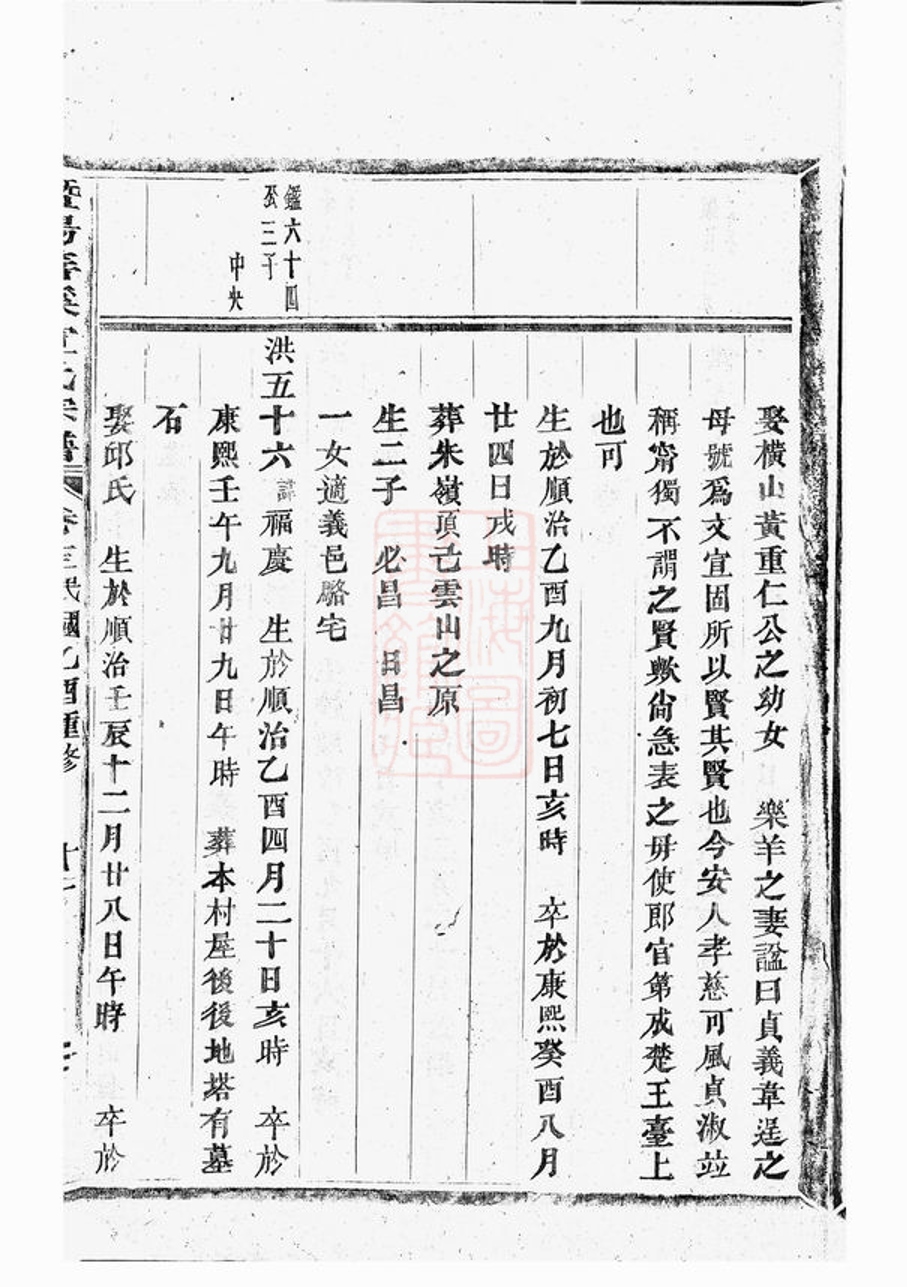 娶橫山黃重仁公之幼女　樂羊之妻諡曰貞義韋逞之
母號爲文宣固所以賢其賢也今安人孝慈可風貞淑竝
稱甯獨不謂之賢歟尙急表之毋使郎官第成楚王臺上
也可
生於順治乙酉九月初七日亥時　卒於康熙癸酉八月
廿四日戌時
葬朱嶺頂己雲山之原
生二子　必昌　日昌
一女適義邑駱宅
鑑六十四
公三子
中央
洪五十六諱福慶　生於順治乙酉四月二十日亥時　卒於
康熙壬午九月廿九日午時　葬本村屋後後地塔有墓
石
娶邱氏　生於順治壬辰十二月廿八日午時　卒於
氏宗譜　卷三民國乙酉重修
海圖書館藏